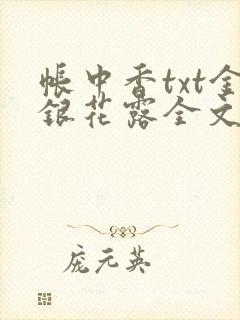 帳中香txt金
銀花露全文
庞元英